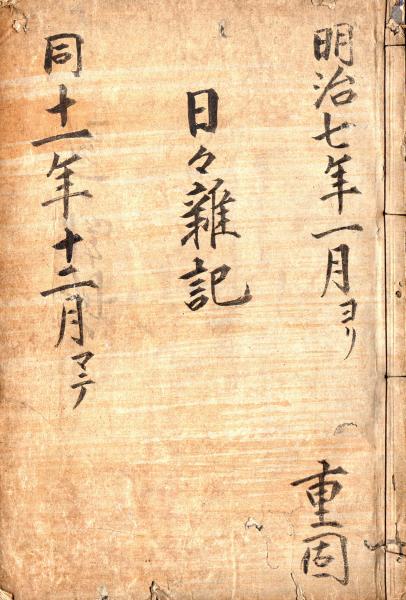 明治七年一月ヨリ
日々雑記
同十一年十二月マテ
重固